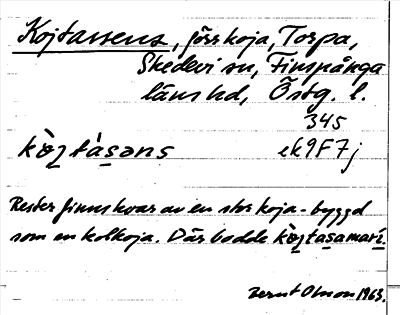 Kojtassens, jösskoja, Torpa,
Skedevi sn, Finspånga
läns hd, Östg. l.
345
kòz̲tàs̲əns̲ ek9F7j
Rester finns kvar av en stor koja - byggd
som en kolkoja. Där bodde kòz̲tas̲amarí.
Bernt Olsson 1963.